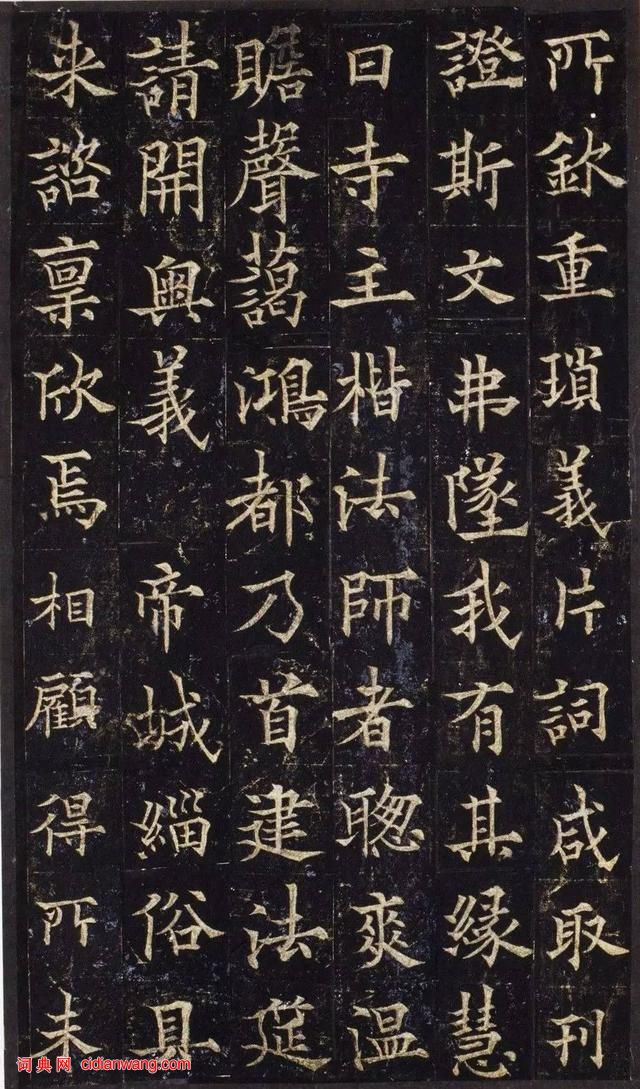 所欽重瑣義片詞咸取刊
證斯文弗墜我有其縁慧
日寺主楷法師者聰爽温
贍聲藹鴻都乃首建法筵
請開奥義 帝城緇俗具
来諮稟欣焉相顧得所未
词典网 cidianwang.com